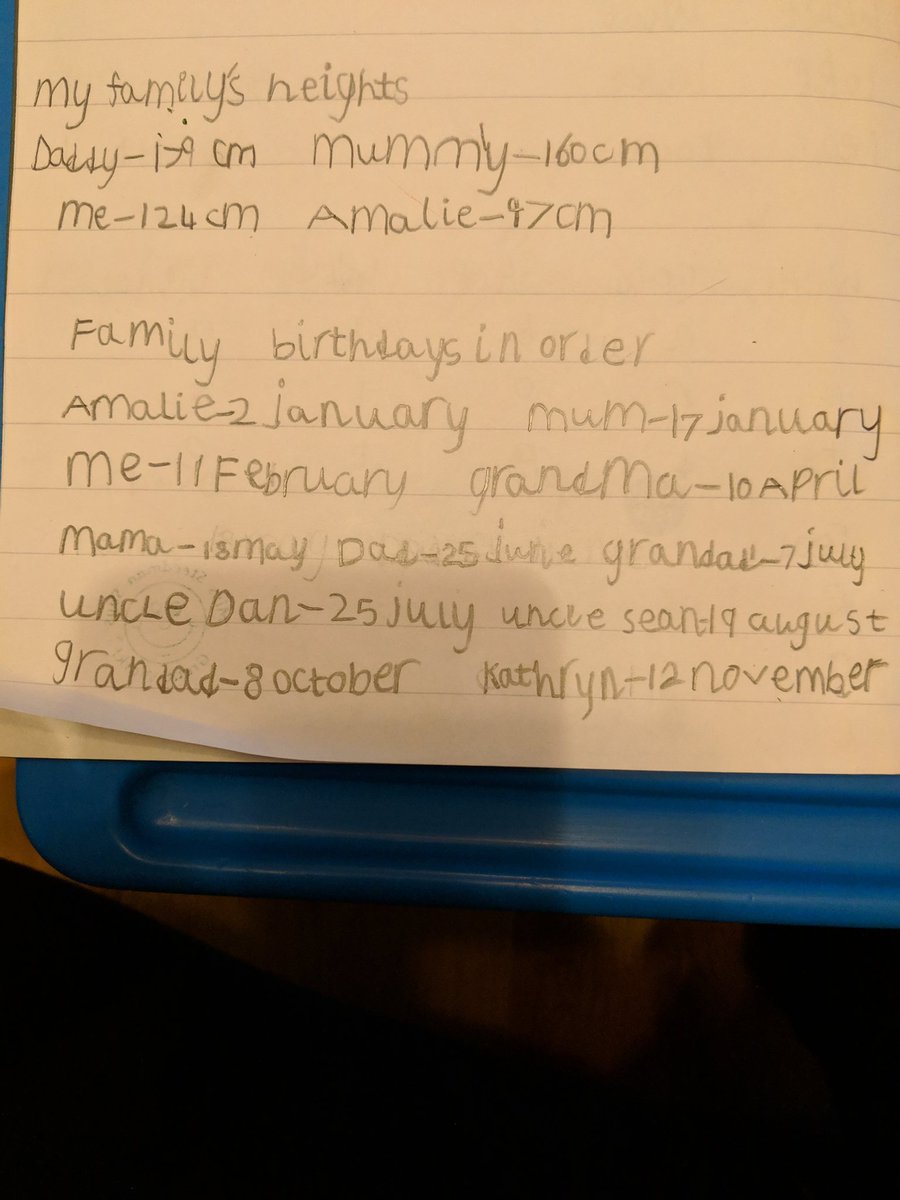 my family's heights
Daddy-179 cm mummy-160cm
me-124cm Amalie-97cm
Family birthdays in order
Amalie-2 january mum-17 january
me-11 February grandMa-10 April
mama-18 may Dad-25 june grandad-7 july
uncle Dan-25 july uncle sean-19 august
grandad-8 october Kathryn-12 november